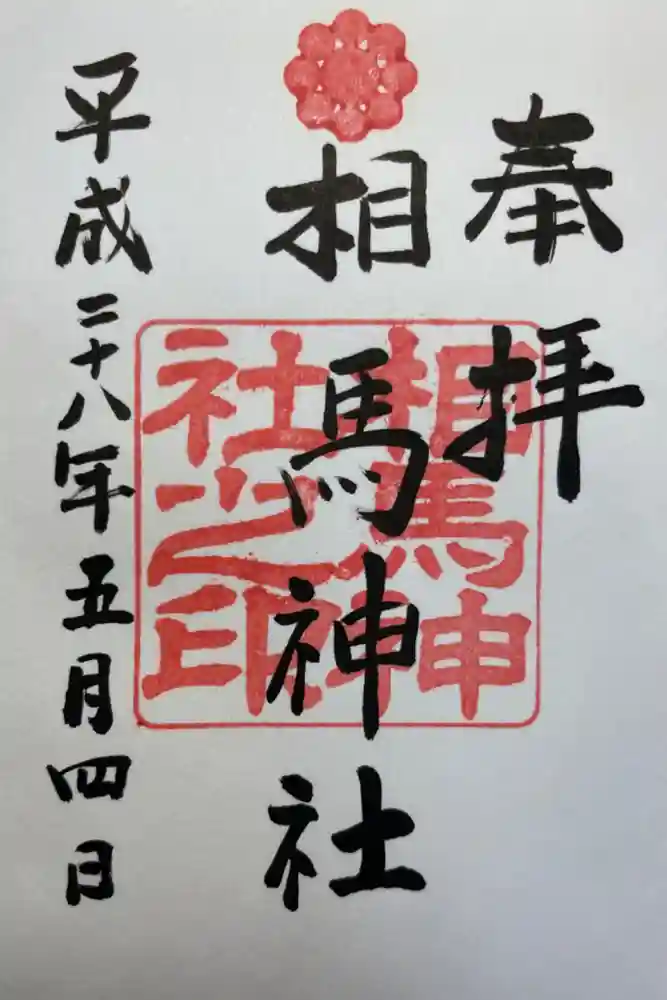 奉拝
相馬神社
相馬神
社之印
平成二十八年五月四日